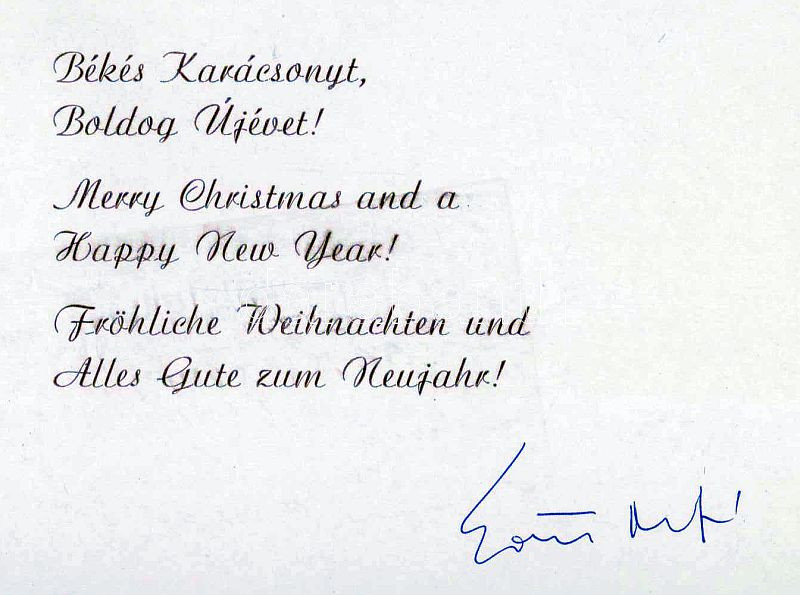 Békés Karácsonyt,
Boldog Újévet!
Merry Christmas and a
Happy New Year!
Fröhliche Weihnachten und
Alles Gute zum Neujahr!